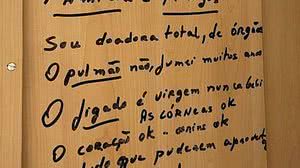 Sou doadora total, de órgãos
O pulmão não, fumei muitos anos
O fígado é virgem nunca bebi
AS CÓRNEAS OK
O coração ok - ok
tudo que puderem aproveita